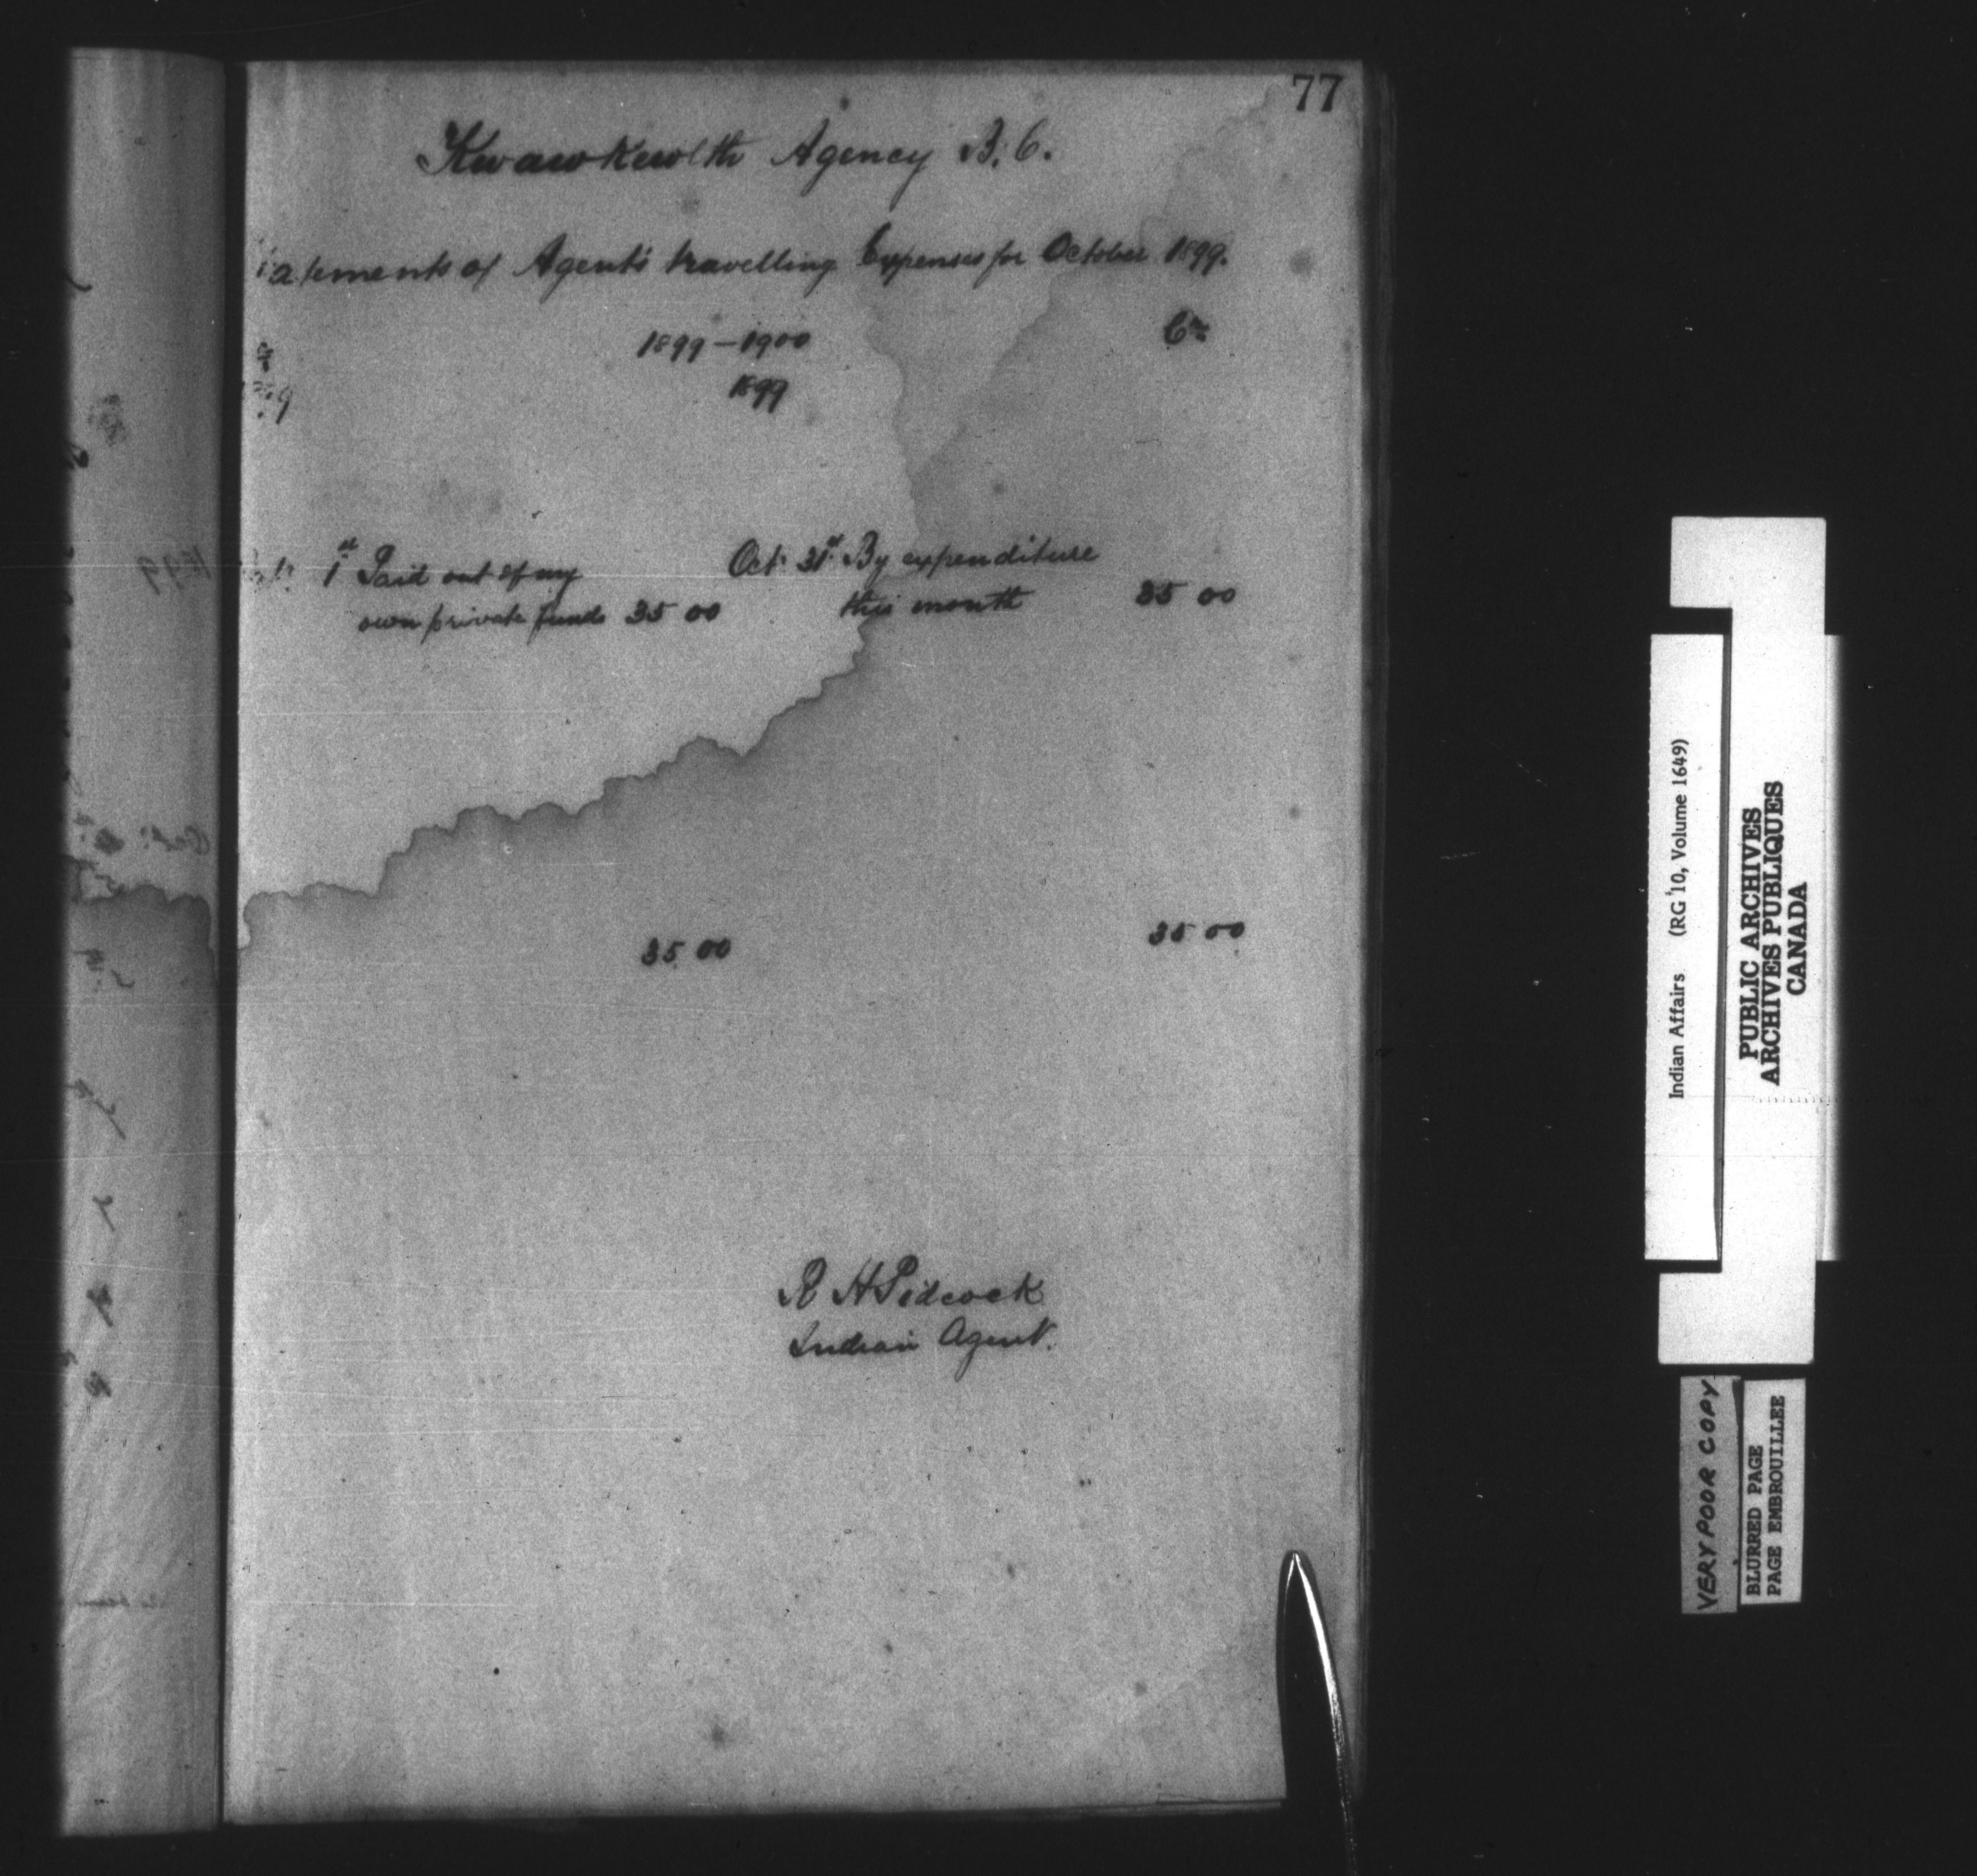 77
Kwawkewlth Agency B.C.
atements of Agent's travelling Expenses for October 1899.
1899-1900 Cr
1899
1st Paid out of my Oct. 31st By expenditure
own private funds 35 00 this month 35 00
35 00 35 00
R H Pidcock
Indian Agent.
Indian Affairs (RG 10, Volume 1649)
PUBLIC ARCHIVES
ARCHIVES PUBLIQUES
CANADA
VERY POOR COPY
BLURRED PAGE
PAGE EMBROUILLEE